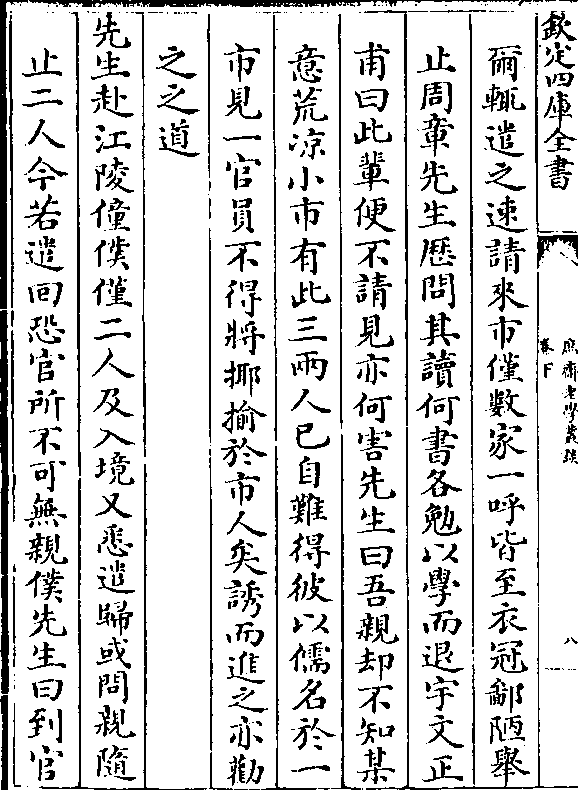 欽定四庫全書
庶齋老學叢談
卷下
八
爾輒遣之速請來市僅數家一呼皆至衣冠鄙陋舉
止周章先生歷問其讀何書各勉以學而退宇文正
甫曰此輩便不請見亦何害先生曰吾親却不知某
意荒凉小市有此三兩人已自難得彼以儒名於一
市見一官員不得將揶揄於市人矣誘而進之亦勸
之之道
先生赴江陵僮僕僅二人及入境又悉遣歸或問親隨
止二人今若遣回恐官所不可無親僕先生曰到官